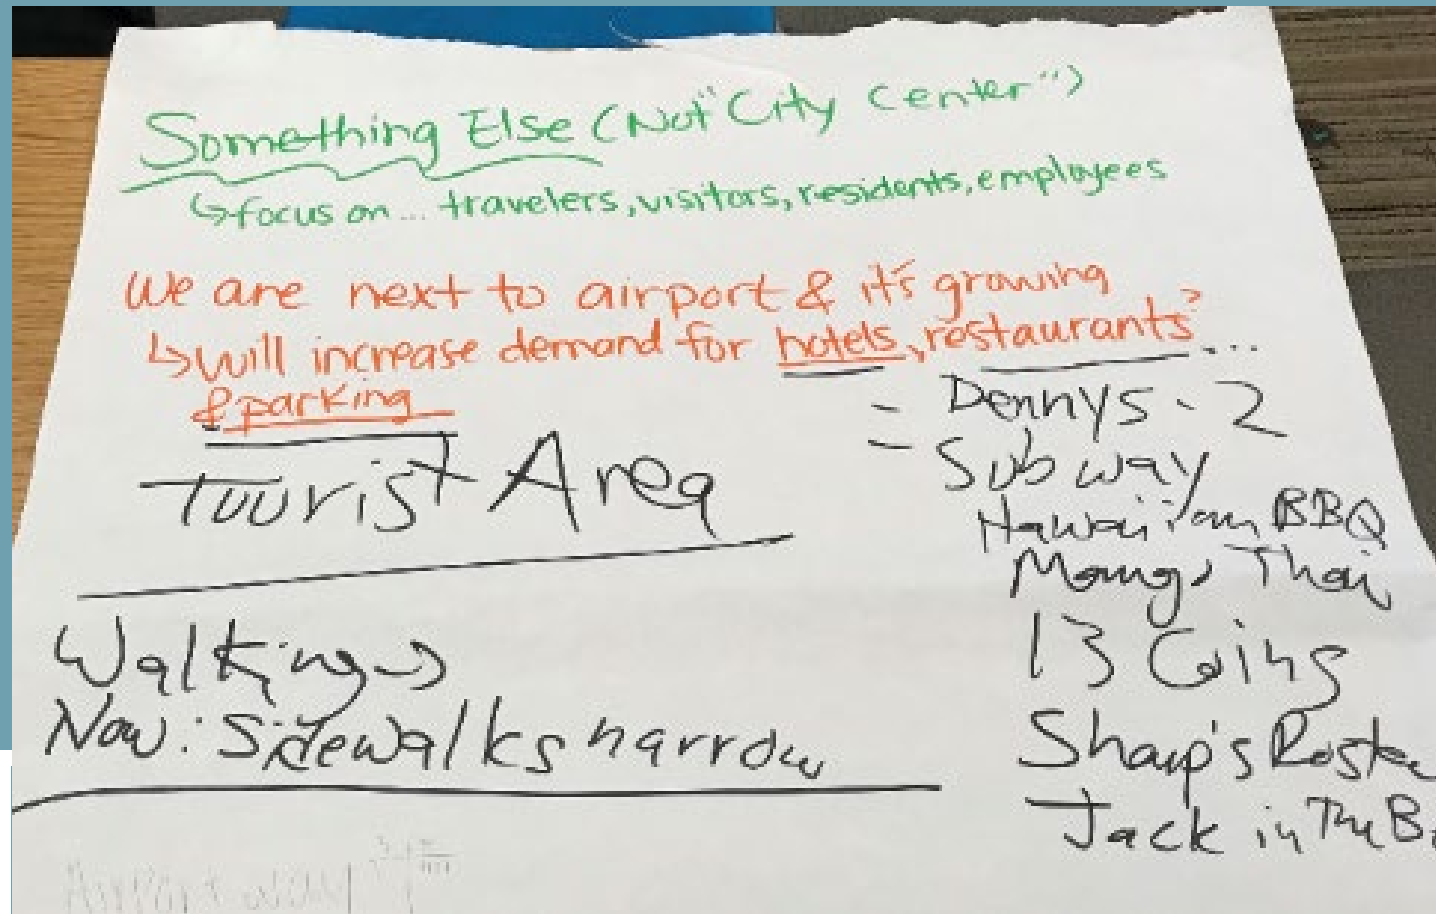 Something Else (Not "City Center")
↳ focus on... travelers, visitors, residents, employees
We are next to airport & it's growing
↳ will increase demand for hotels, restaurants...
& parking
Tourist Area
= Dennys - 2
- Subway
Hawaiian BBQ
Mango Thai
13 Coins
Sharp's Roste
Jack in The B
Walking →
Now: Sidewalks narrow